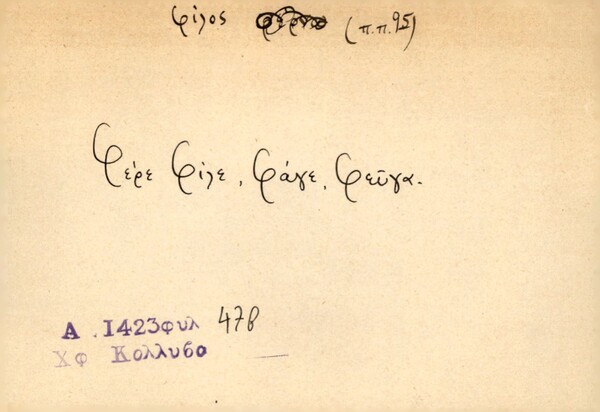 φίλος (π.π. 95)
Φέρε Φίλε, Φάγε, Φεῦγα.
Α .1423φυλ 47β
Χφ Κολλυβα